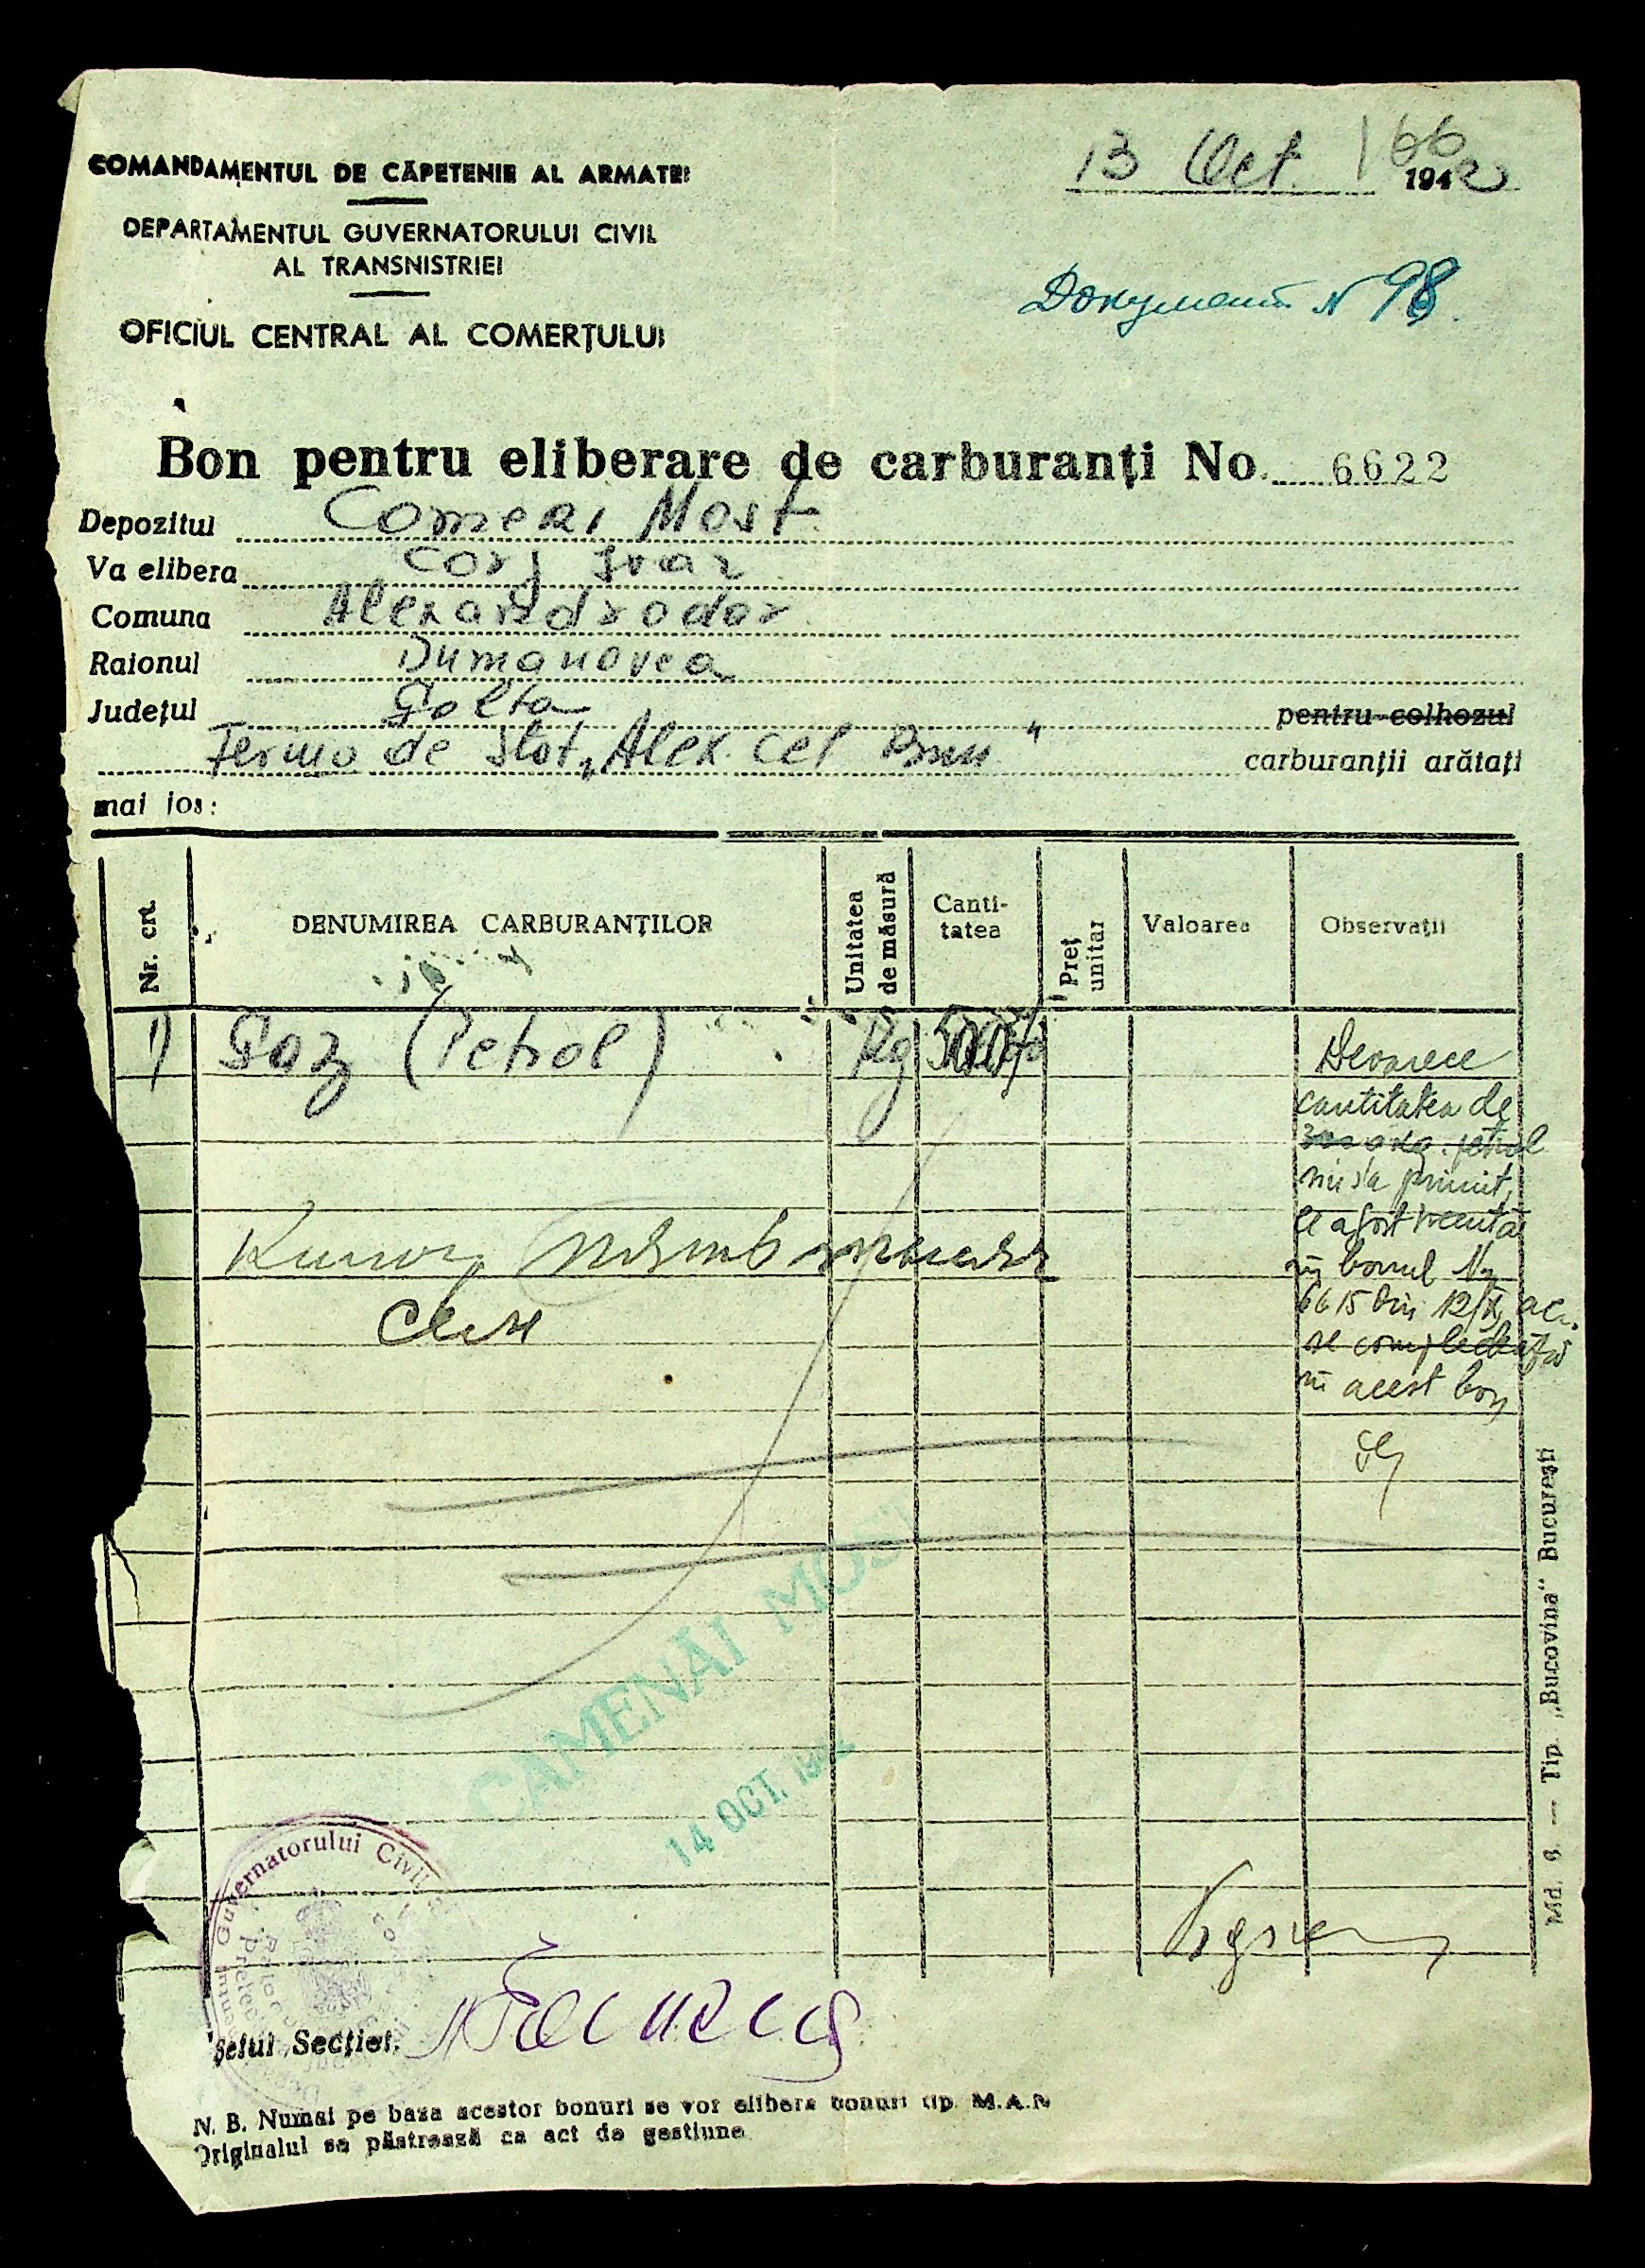 COMANDAMENTUL DE CĂPETENIE AL ARMATEI
13 Oct. 1942
166
DEPARTAMENTUL GUVERNATORULUI CIVIL
AL TRANSNISTRIEI
Документ N 98.
OFICIUL CENTRAL AL COMERȚULUI
Bon pentru eliberare de carburanți No. 6622
Depozitul Most
Va elibera Corj Ivan
Comuna Alexandrodar
Raionul Dumanovca
Județul Golta pentru colhozul
Ferma de Stat „Alex. cel Bun" carburanții arătați
mai jos:
Nr. crt.
DENUMIREA CARBURANȚILOR
Unitatea de măsură
Canti-
tatea
Preț unitar
Valoarea
Observații
1) Gaz (Petrol) Kg
Deoarece
cantitatea de
petrol
nu s'a primit,
ce a fost
în bonul No
6615 din 12/X, 
se completează
în acest bon
CAMENĂI MOST
14 OCT. 194
Guvernatorului Civil
Șeful Secției,
N. B. Numai pe baza acestor bonuri se vor elibera bonuri tip M.A.R.
Originalul se păstrează ca act de gestiune
Md. 9. — Tip. „Bucovina" București